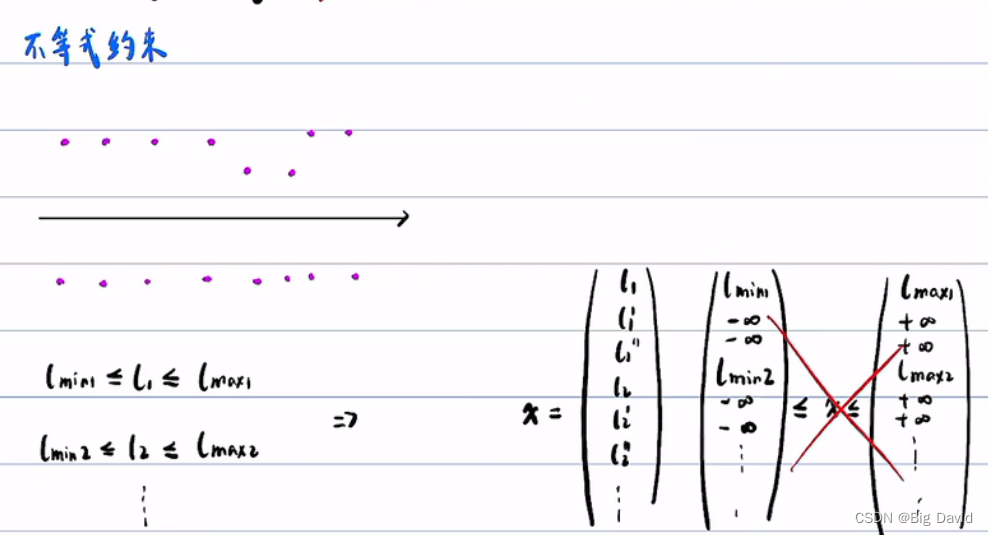 不等式约束
lmin1 ≤ l1 ≤ lmax1
lmin2 ≤ l2 ≤ lmax2
⇒
x =
l1
l1'
l1''
l2
l2'
l2''
lmin1
-∞
-∞
lmin2
-∞
-∞
≤ x ≤
lmax1
+∞
+∞
lmax2
+∞
+∞
CSDN @Big David